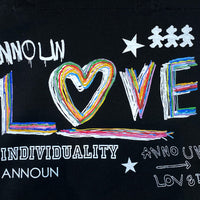 ANNOUN
LOVE
INDIVIDUALITY
ANNOUN
ANNOUN
LOVE